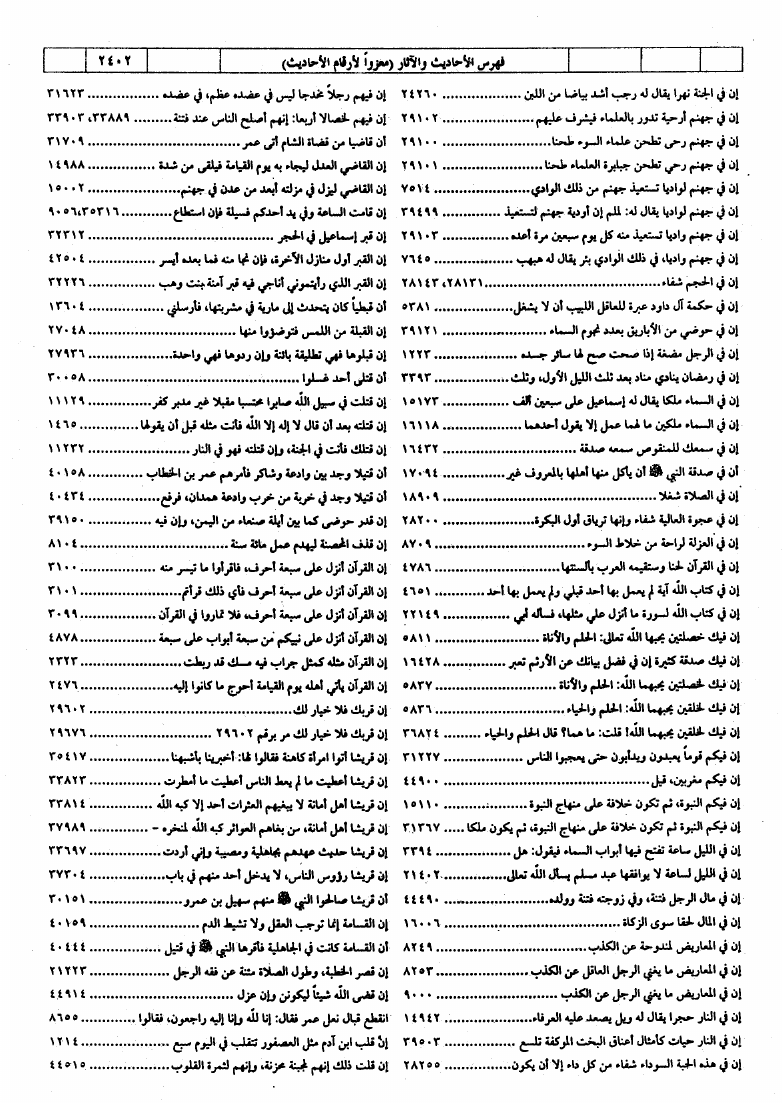 فهرس الأحاديث والآثار (معزواً لأرقام الأحاديث)
٢٤٠٢
إن في الجنة نهرا يقال له رجب أشد بياضا من اللبن ..... ٢٤٢٦٠
إن في جهنم أرحية تدور بالعلماء فيشرف عليهم ..... ٢٩١٠٢
إن في جهنم رحى تطحن علماء السوء طحنا ..... ٢٩١٠٠
إن في جهنم رحى تطحن جبابرة العلماء طحنا ..... ٢٩١٠١
إن في جهنم لواديا تستعيذ جهنم من ذلك الوادي ..... ٧٥١٤
إن في جهنم لواديا يقال له: لملم إن أودية جهنم لتستعيذ ..... ٣٩٤٩٩
إن في جهنم واديا تستعيذ منه كل يوم سبعين مرة أعده ..... ٢٩١٠٣
إن في جهنم واديا، في ذلك الوادي بئر يقال له هبهب ..... ٧٦٤٥
إن في الحجم شفاء ..... ٢٨١٣١، ٢٨١٤٣
إن في حكمة آل داود عبرة للعاقل اللبيب أن لا يشغل ..... ٥٣٨١
إن في حوضي من الأباريق بعدد نجوم السماء ..... ٣٩١٢١
إن في الرجل مضغة إذا صحت صح لها سائر جسده ..... ١٢٢٣
إن في رمضان ينادي مناد بعد ثلث الليل الأول، وثلث ..... ٣٣٩٣
إن في السماء ملكا يقال له إسماعيل على سبعين ألف ..... ١٥١٧٣
إن في السماء ملكين ما لهما عمل إلا يقول أحدهما ..... ١٦١١٨
إن في سمعك للمنقوص سمعه صدقة ..... ١٦٤٣٢
أن في صدقة النبي ﷺ أن يأكل منها أهلها بالمعروف غير ..... ١٧٠٩٤
إن في الصلاة شغلا ..... ١٨٩٠٩
إن في عجوة العالية شفاء وإنها ترياق أول البكرة ..... ٢٨٢٠٠
إن في العزلة لراحة من خلاط السوء ..... ٨٧٠٩
إن في القرآن لحنا وستقيمه العرب بألسنتها ..... ٤٧٨٦
إن في كتاب الله آية لم يعمل بها أحد قبلي ولم يعمل بها أحد ..... ٤٦٥١
إن في كتاب الله لسورة ما أنزل علي مثلها، فسأله أبي ..... ٢٢١٤٩
إن فيك خصلتين يحبها الله تعالى: الحلم والأناة ..... ٥٨١١
إن فيك صدقة كثيرة إن في فضل بيانك عن الأرثم تعبر ..... ١٦٤٢٨
إن فيك لخصلتين يحبهما الله: الحلم والأناة ..... ٥٨٣٧
إن فيك لخلقين يحبهما الله: الحلم والحياء ..... ٥٨٣٦
إن فيك لخلقين يحبهما الله! قلت: ما هما؟ قال الحلم والحياء ..... ٣٦٨٢٤
إن فيكم قوماً يعبدون ويدأبون حتى يعجبوا الناس ..... ٣١٢٢٧
إن فيكم مغربين، قيل ..... ٤٤٩٠٠
إن فيكم النبوة، ثم تكون خلافة على منهاج النبوة ..... ١٥١١٠
إن فيكم النبوة ثم تكون خلافة على منهاج النبوة، ثم يكون ملكا ..... ٣١٣٦٧
إن في الليل ساعة تفتح فيها أبواب السماء فيقول: هل ..... ٣٣٩٤
إن في الليل لساعة لا يوافقها عبد مسلم يسأل الله تعالى ..... ٢١٤٠٢
إن في مال الرجل فتنة، وفي زوجته فتنة وولده ..... ٤٤٤٩٠
إن في المال لحقا سوى الزكاة ..... ١٦٠٠٦
إن في المعاريض لمندوحة عن الكذب ..... ٨٢٤٩
إن في المعاريض ما يغني الرجل العاقل عن الكذب ..... ٨٢٥٣
إن في المعاريض ما يغني الرجل عن الكذب ..... ٩٠٠٠
إن في النار حجرا يقال له ويل يصعد عليه العرفاء ..... ١٤٩٤٢
إن في النار حيات كأمثال أعناق البخت الموكفة تلسع ..... ٣٩٥٠٣
إن في هذه الحبة السوداء شفاء من كل داء إلا أن يكون ..... ٢٨٢٥٥
إن فيهم رجلاً مخدجا ليس في عضده عظم، في عضده ..... ٣١٦٢٣
إن فيهم لخصالا أربعا: إنهم أصلح الناس عند فتنة ..... ٣٣٨٨٩، ٣٣٩٠٣
أن قاضيا من قضاة الشام أتى عمر ..... ٣١٧٠٩
إن القاضي العدل ليجاء به يوم القيامة فيلقى من شدة ..... ١٤٩٨٨
إن القاضي ليزل في مزلته أبعد من عدن في جهنم ..... ١٥٠٠٢
إن قامت الساعة وفي يد أحدكم فسيلة فإن استطاع ..... ٩٠٥٦، ٣٥٣١٦
إن قبر إسماعيل في الحجر ..... ٣٢٣١٢
إن القبر أول منازل الآخرة، فإن نجا منه فما بعده أيسر ..... ٤٢٥٠٤
إن القبر الذي رأيتموني أناجي فيه قبر آمنة بنت وهب ..... ٣٢٢٢٦
أن قبطياً كان يتحدث إلى مارية في مشربتها، فأرسلني ..... ١٣٦٠٤
إن القبلة من اللمس فتوضؤوا منها ..... ٢٧٠٤٨
إن قبلوها فهي تطليقة بائنة وإن ردوها فهي واحدة ..... ٢٧٩٣٦
أن قتلى أحد غسلوا ..... ٣٠٠٥٨
إن قتلت في سبيل الله صابرا محتسبا مقبلا غير مدبر كفر ..... ١١١٢٩
إن قتلته بعد أن قال لا إله إلا الله فأنت مثله قبل أن يقولها ..... ١٤٦٥
إن قتلك فأنت في الجنة، وإن قتلته فهو في النار ..... ١١٢٣٢
أن قتيلا وجد بين وادعة وشاكر فأمرهم عمر بن الخطاب ..... ٤٠١٥٨
أن قتيلا وجد في خربة من خرب وادعة همدان، فرفع ..... ٤٠٤٣٤
إن قدر حوضى كما بين أيلة صنعاء من اليمن، وإن فيه ..... ٣٩١٥٠
إن قذف المحصنة ليهدم عمل مائة سنة ..... ٨١٠٤
إن القرآن أنزل على سبعة أحرف، فاقرأوا ما تيسر منه ..... ٣١٠٠
إن القرآن أنزل على سبعة أحرف فأي ذلك قرأتم ..... ٣١٠١
إن القرآن أنزل على سبعة أحرف، فلا تماروا في القرآن ..... ٣٠٩٩
إن القرآن أنزل على نبيكم من سبعة أبواب على سبعة ..... ٤٨٧٨
إن القرآن مثله كمثل جراب فيه مسك قد ربطت ..... ٢٣٢٣
إن القرآن يأتي أهله يوم القيامة أحوج ما كانوا إليه ..... ٢٤٧٦
إن قربك فلا خيار لك ..... ٢٩٦٠٢
إن قربك فلا خيار لك مر برقم ٢٩٦٠٢ ..... ٢٩٦٧٦
إن قريشا أتوا امرأة كاهنة فقالوا لها: أخبرينا بأشبهنا ..... ٣٥٤١٧
إن قريشا أعطيت ما لم يعط الناس أعطيت ما أمطرت ..... ٣٣٨٢٣
إن قريشا أهل أمانة لا يبغيهم العثرات أحد إلا كبه الله ..... ٣٣٨١٤
إن قريشا أهل أمانة، من بغاهم العوائر كبه الله لمنخره - ..... ٣٧٩٨٩
إن قريشا حديث عهدهم بجاهلية ومصيبة وإني أردت ..... ٣٣٦٩٧
إن قريشا رؤوس الناس، لا يدخل أحد منهم في باب ..... ٣٧٣٠٤
أن قريشا صالحوا النبي ﷺ منهم سهيل بن عمرو ..... ٣٠١٥١
إن القسامة إنما توجب العقل ولا تشيط الدم ..... ٤٠١٥٩
أن القسامة كانت في الجاهلية فأقرها النبي ﷺ في قتيل ..... ٤٠٤٤٤
إن قصر الخطبة، وطول الصلاة مئنة عن فقه الرجل ..... ٢١٢٢٣
إن قضى الله شيئاً ليكونن وإن عزل ..... ٤٤٩١٤
انقطع قبال نعل عمر فقال: إنا لله وإنا إليه راجعون، فقالوا ..... ٨٦٥٥
إنّ قلب ابن آدم مثل العصفور تتقلب في اليوم سبع ..... ١٢١٤
إن قلت ذلك إنهم لمجبنة محزنة، وإنهم لثمرة القلوب ..... ٤٤٥١٥